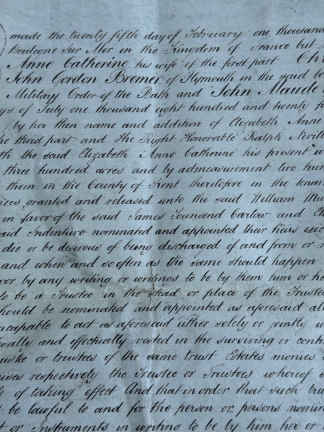 made the twenty fifth day of February one thousand
Boulogne Sur Mer in the Kingdom of France but
Anne Catherine his wife of the first part Chr
John Gordon Bremer of Plymouth in the said
Military Order of the Bath and John Maude
ys of July one thousand eight hundred and twenty
by her then name and addition of Elizabeth Anne
the third part and The Right Honorable Ralph
th the said Elizabeth Anne Catherine his present w
three hundred acres and by admeasurement two hun
them in the County of Kent therefore in the
ices granted and released unto the said William
in favor of the said James Townsend
said Indenture nominated and appointed their heirs
die or be desirous of being discharged of and from or
and when and so often as the same should happen
vor by any writing or writings to be by them him or h
to be a Trustee in the stead or place of the Trustee
should be nominated and appointed as aforesaid al
capable to act as aforesaid either solely or jointly
ally and effectually vested in the surviving or contin
ustee or trustees of the same trust Estates monies
was respectively the Trustee or Trustees whereof
of taking effect And that in order that such tru
be lawful to and for the person or persons nomin
or Instruments in writing to be by him her or